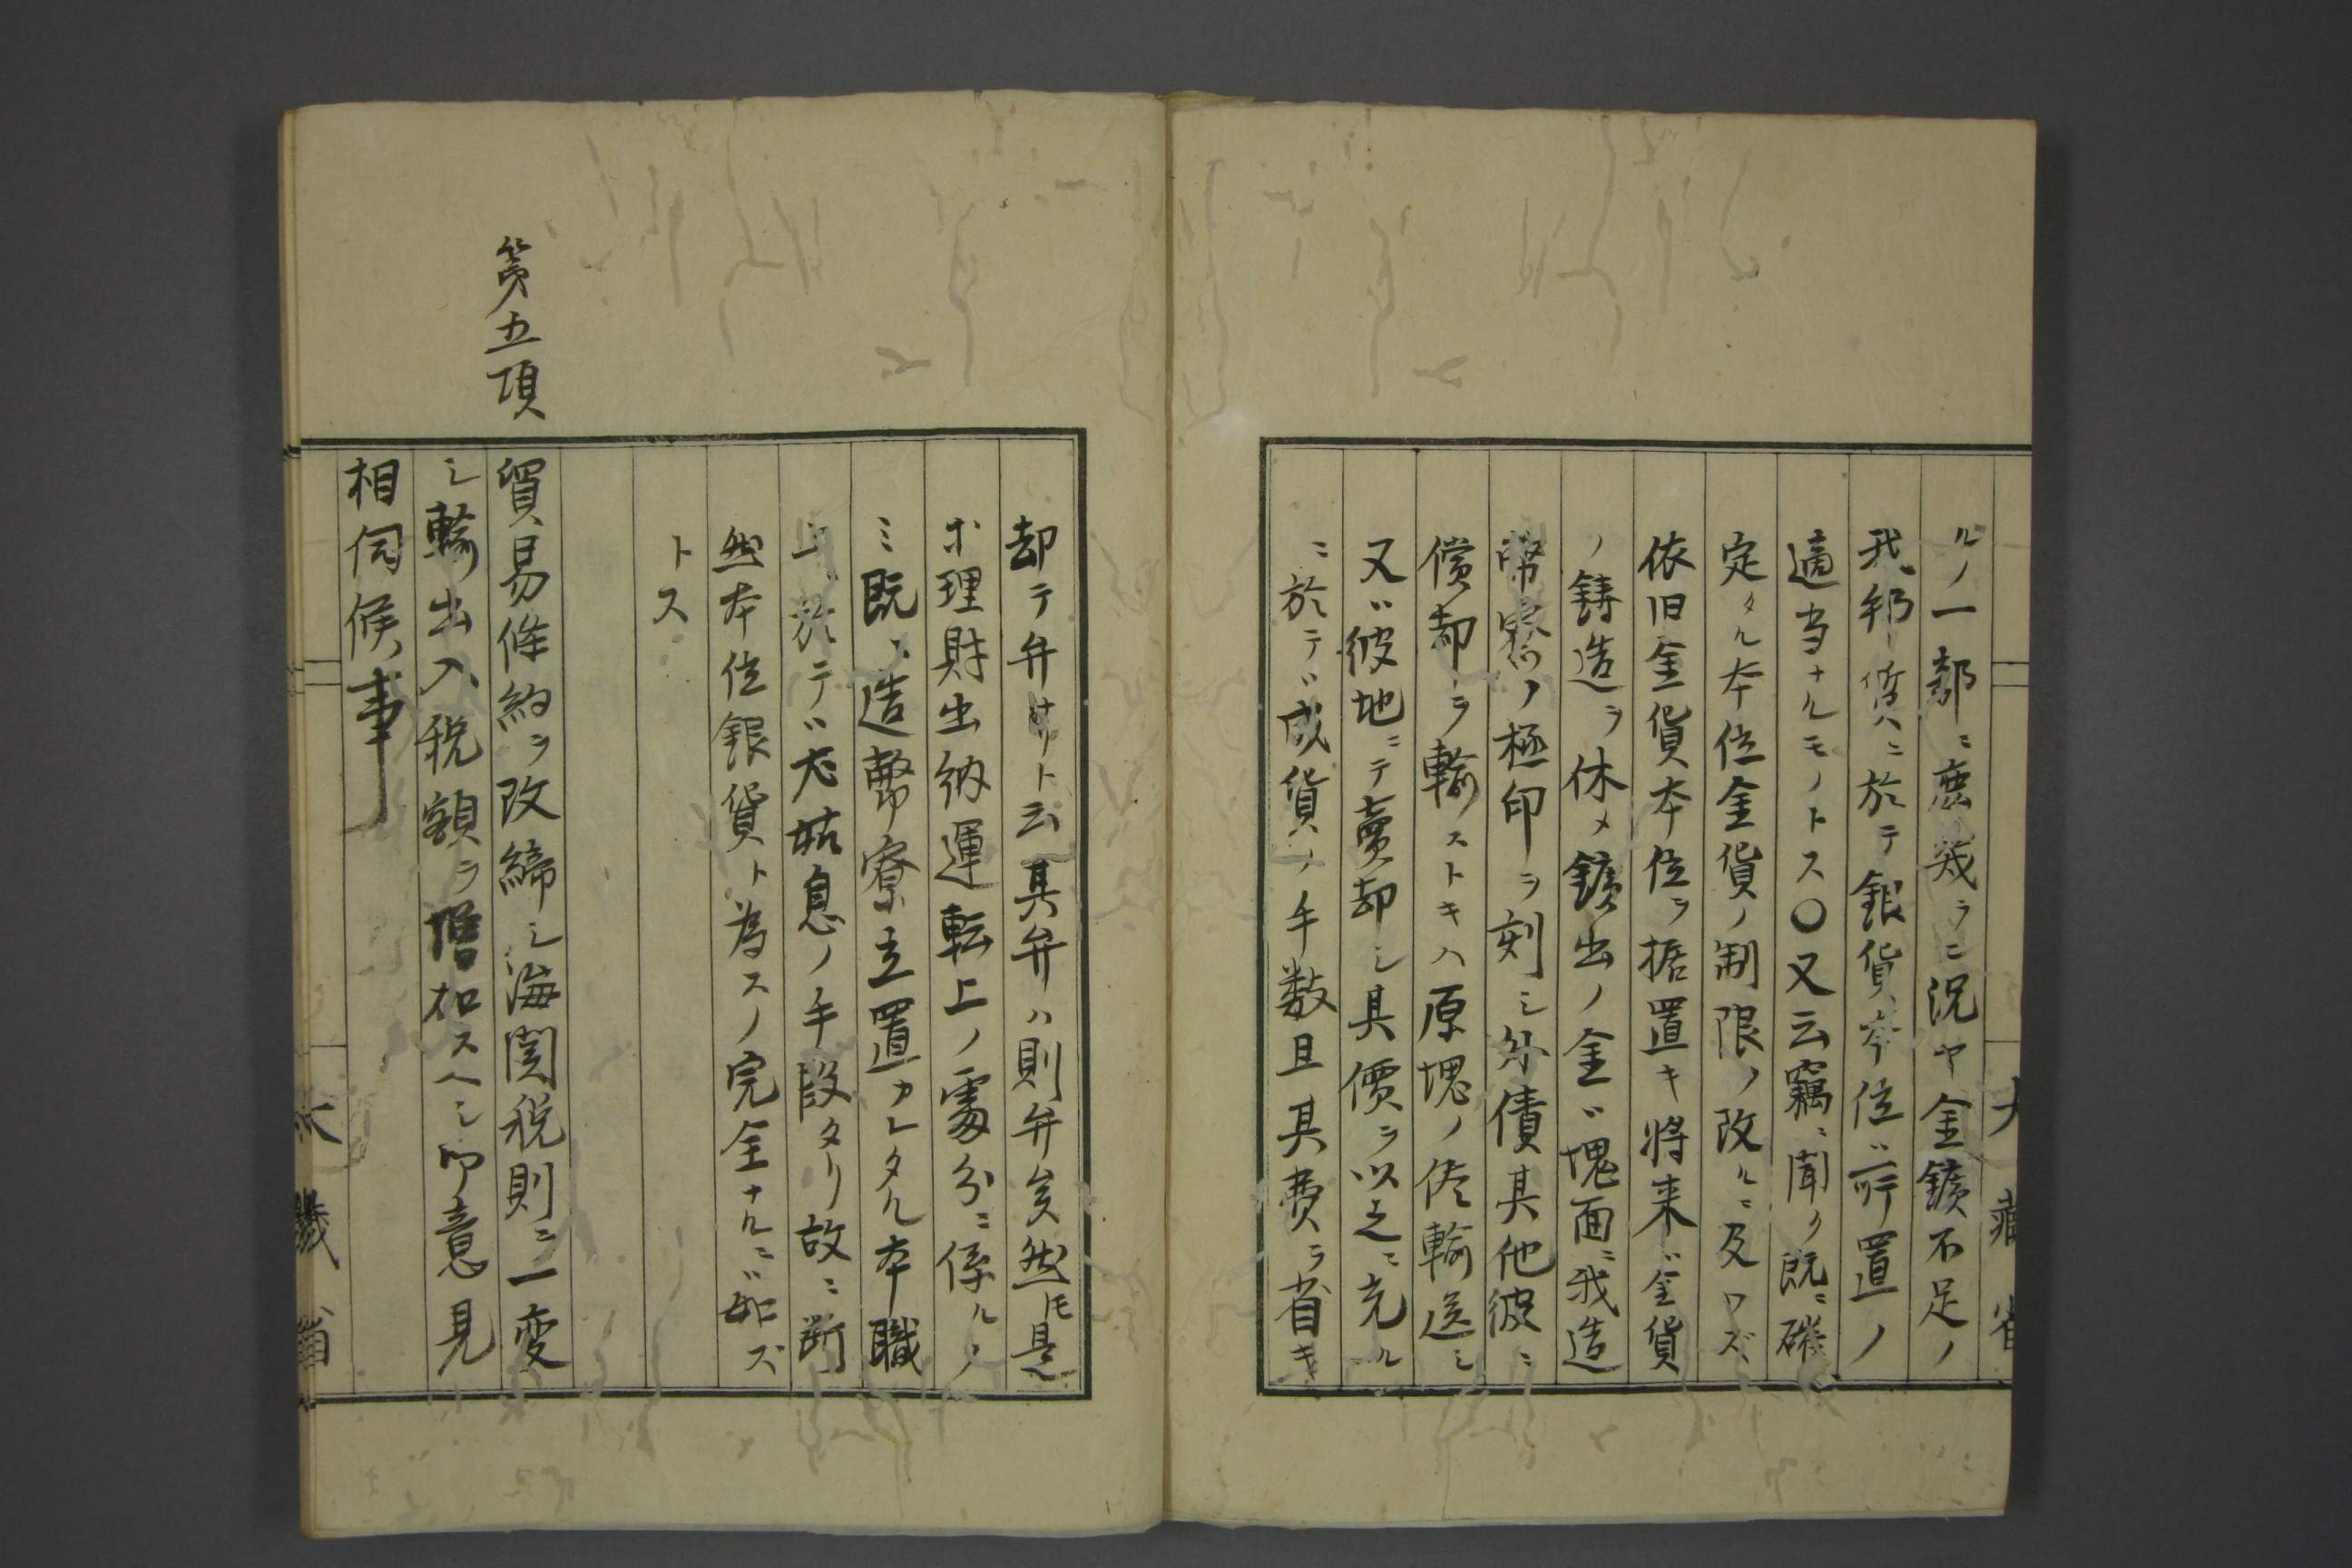 ルノ一部ニ庶幾ラニ況ヤ金鑛不足ノ
我邦ニ於テ銀貨本位ヲ置ノ
適当ナルモノトス〇又云竊ニ聞ク既ニ確
定タル本位金貨ノ制限ノ改ルニ及ワズ、
依旧金貨本位ヲ据置キ将来ヾ金貨
ノ鋳造ヲ休メ鑛出ノ金ヾ塊面ニ我造
幣寮ノ極印ヲ刻シ外債其他彼ニ
償却ヲ輸ストキハ原塊ノ侭輸送シ
又ヾ彼地ニテ賣却シ其價ヲ以之ニ充ル
ニ於テヾ成貨ノ手数且其費ヲ省キ
大藏省
却テ弁サト云其弁ハ則弁矣然𪜈是
ホ理財出納運転上ノ處分ニ係ルノ
ミ既ニ造幣寮立置カレタル本職
上ニ於テヾ尤姑息ノ手段タリ故ニ断
然本位銀貨ト為スノ完全ナルニヾ如ズ
トス
第五項
貿易條約ヲ改締シ海関税則ニ一変
シ輸出入税額ヲ増加スヘシ叩意見
相伺候事
大藏省